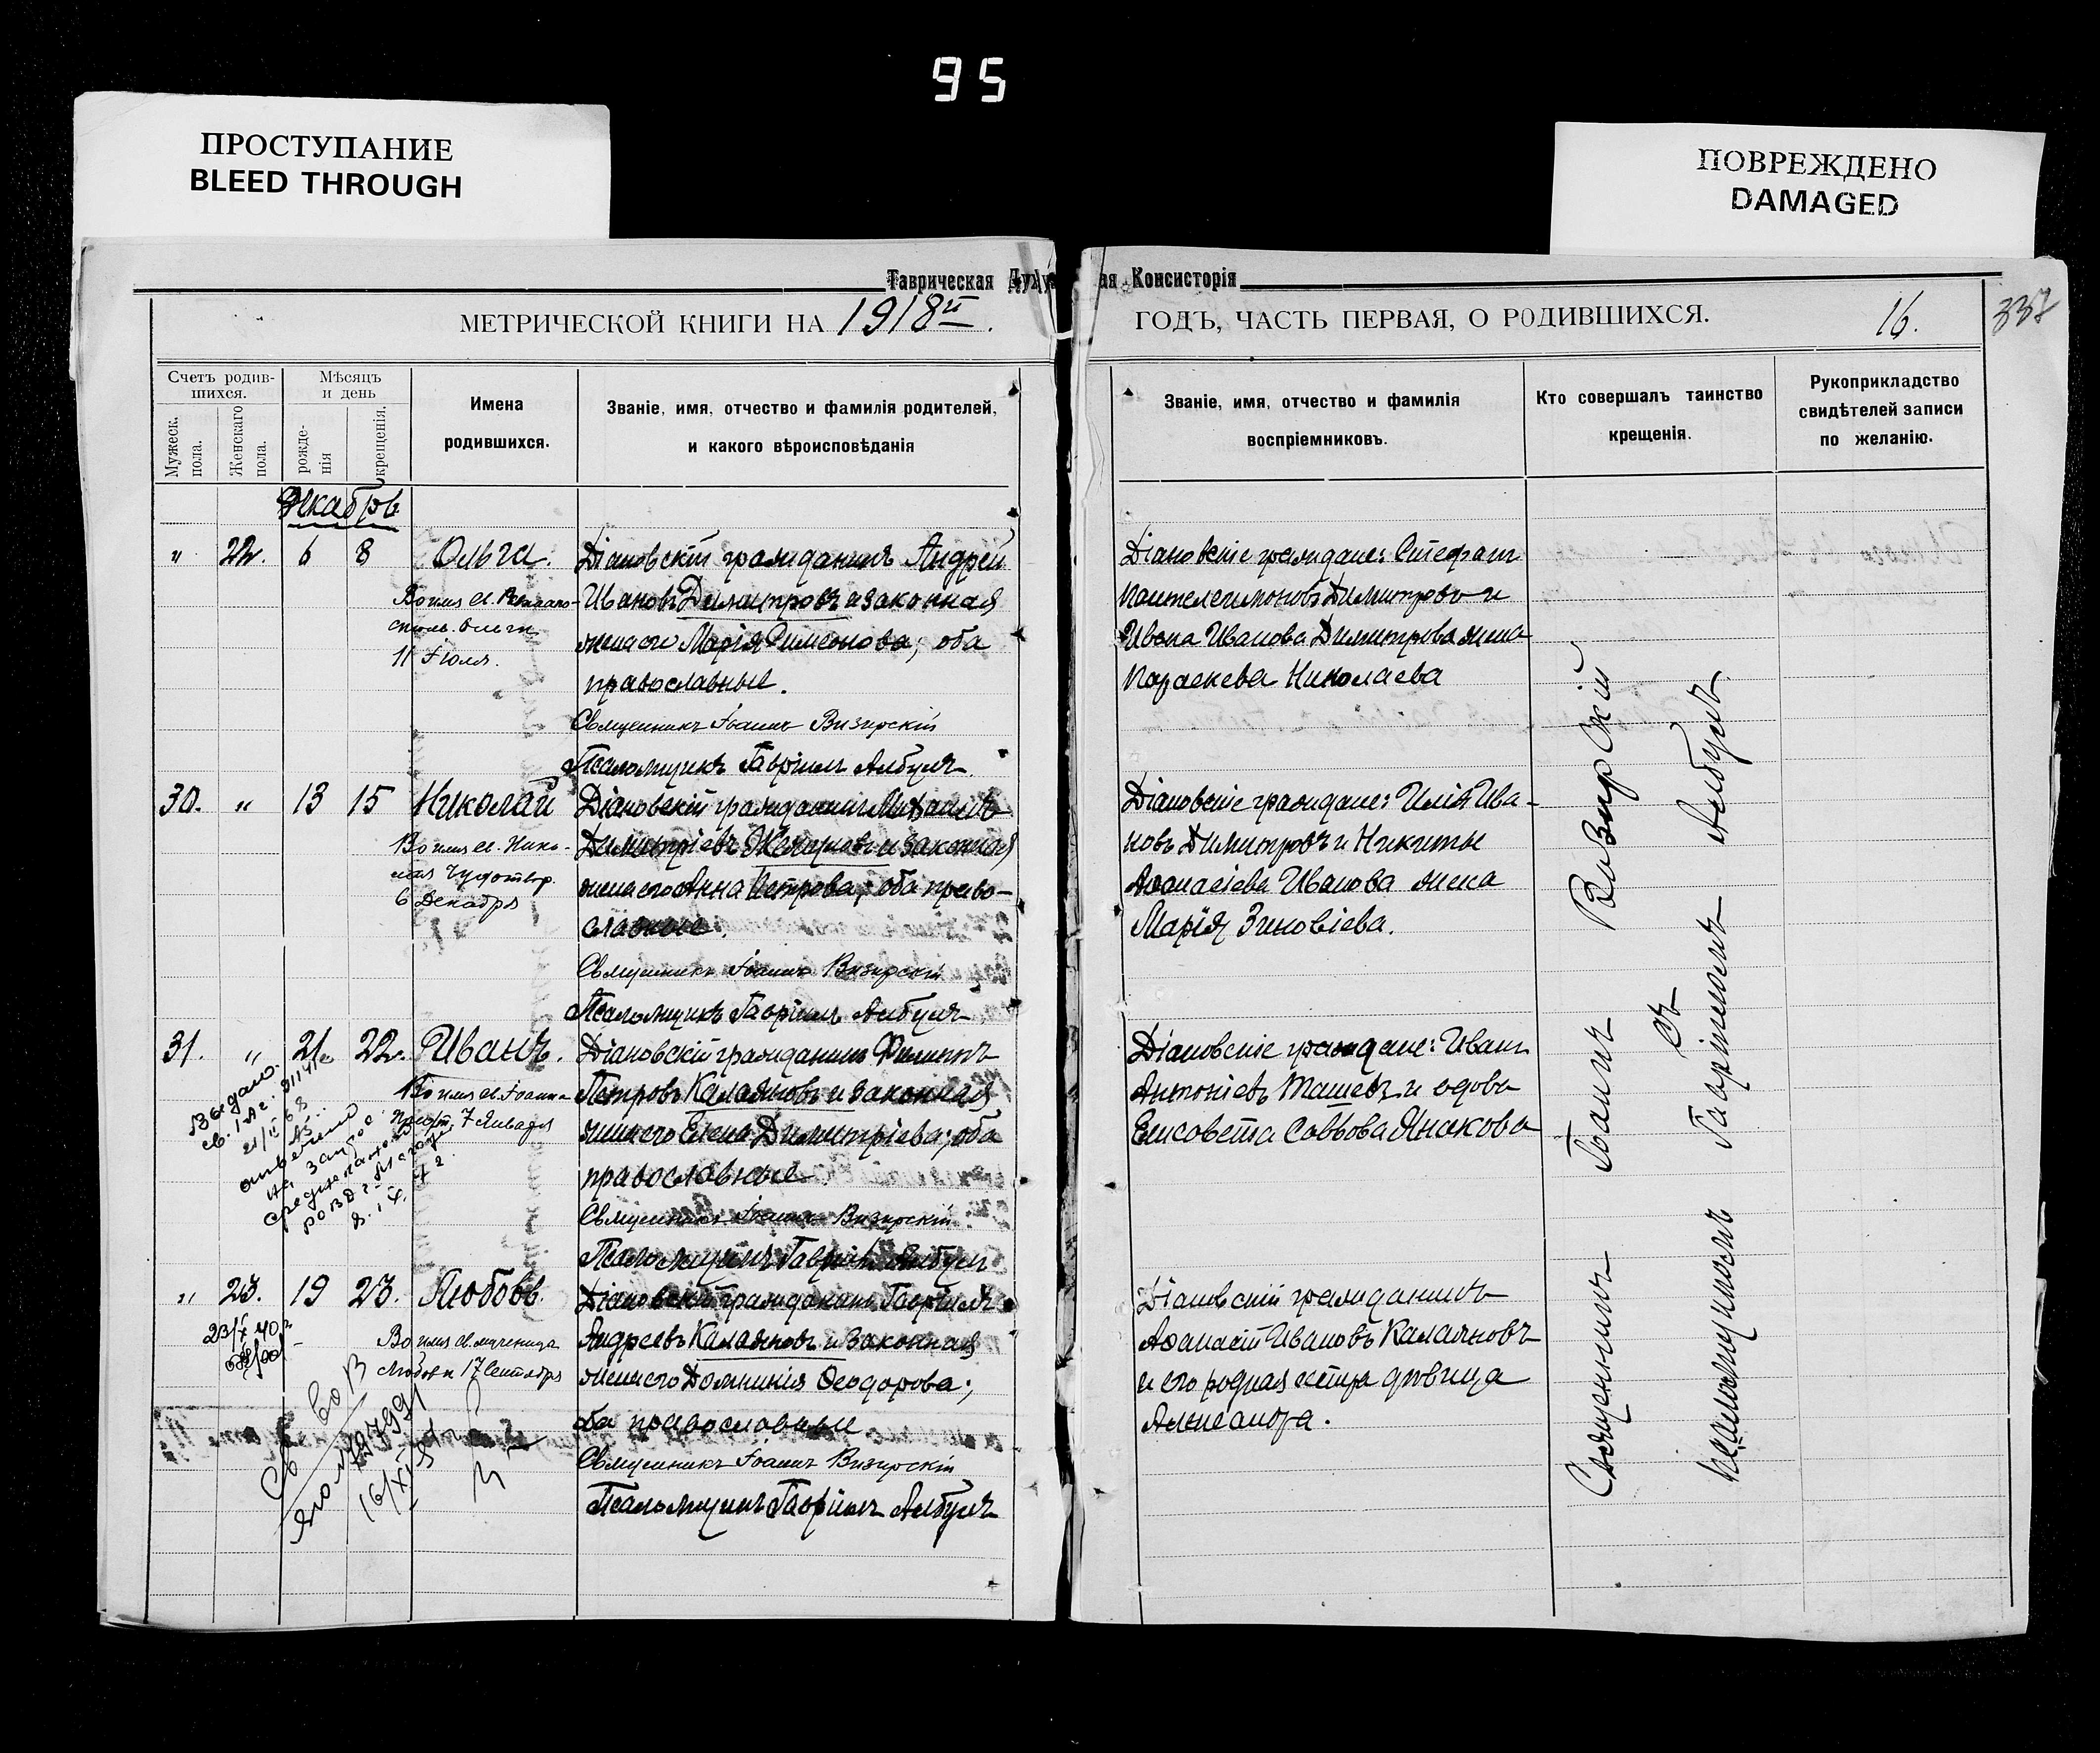 95
ПРОСТУПАНИЕ
BLEED THROUGH
ПОВРЕЖДЕНО
DAMAGED
Таврическая Духо ая Консисторія
МЕТРИЧЕСКОЙ КНИГИ НА 1918й.
ГОДЪ, ЧАСТЬ ПЕРВАЯ, О РОДИВШИХСЯ.
16.
337
Счетъ родив-
шихся.
Мужеск.
пола.
Женскаго
пола.
Мѣсяцъ
и день
рожде-
нія
крещенія.
Имена
родившихся.
Званіе, имя, отчество и фамилія родителей,
и какого вѣроисповѣданія
Званіе, имя, отчество и фамилія
воспріемниковъ.
Кто совершалъ таинство
крещенія.
Рукоприкладство
свидѣтелей записи
по желанію.
Декабрь
" 22. 6 8 Ольга.
Во имя св. Равноапо-
стольн. Ольги
11 Іюля.
Діановскій гражданинъ Андрей
Ивановъ Димитровъ и законная
жена его Марія Симеонова; оба
православные.
Священникъ Іоаннъ Визирскій
Псаломщикъ Гавріилъ Албулъ.
Діановскіе граждане: Стефанъ
Пантелеимоновъ Димитровъ и
Ивана Иванова Димитрова жена
Параскева Николаева
30. " 13 15 Николай
Во имя св. Нико-
лая Чудотвор.
6 Декабря
Діановскій гражданинъ Михаилъ
Димитріевъ и законная
жена его Анна Петрова; оба право-
славные.
Священникъ Іоаннъ Визирскій
Псаломщикъ Гавріилъ Албулъ
Діановскіе граждане: Илія Ива-
новъ Димитровъ и Никиты
Аѳанасіева Иванова жена
Марія Зиновіева.
31. " 21. 22. Иванъ.
Во имя св. Іоанна
Предт. 7 Января
Діановскій гражданинъ Филиппъ
Петровъ Калаяновъ и законная
жена его Елена Димитріева; оба
православные
Священникъ Іоаннъ Визирскій
Псаломщикъ Гавріилъ Албулъ
Діановскіе граждане: Иванъ
Антоніевъ Ташевъ и вдова
Елисавета Саввова Янакова
Выдано.
" 23. 19 23. Любовь.
23/ 40 г
Во имя св. мученицы
Любови 17 Сентября
Св во
16/XI
Діановскій гражданинъ Гавріилъ
Андреевъ Калаяновъ и законная
жена его Домникія Ѳеодорова;
оба православные
Священникъ Іоаннъ Визирскій
Псаломщикъ Гавріилъ Албулъ
Діановскій гражданинъ
Аѳанасій Ивановъ Калаяновъ
и его родная сестра дѣвица
Александра.
Священникъ Іоаннъ Визирскій
съ
псаломщикомъ Гавріиломъ Албулъ.